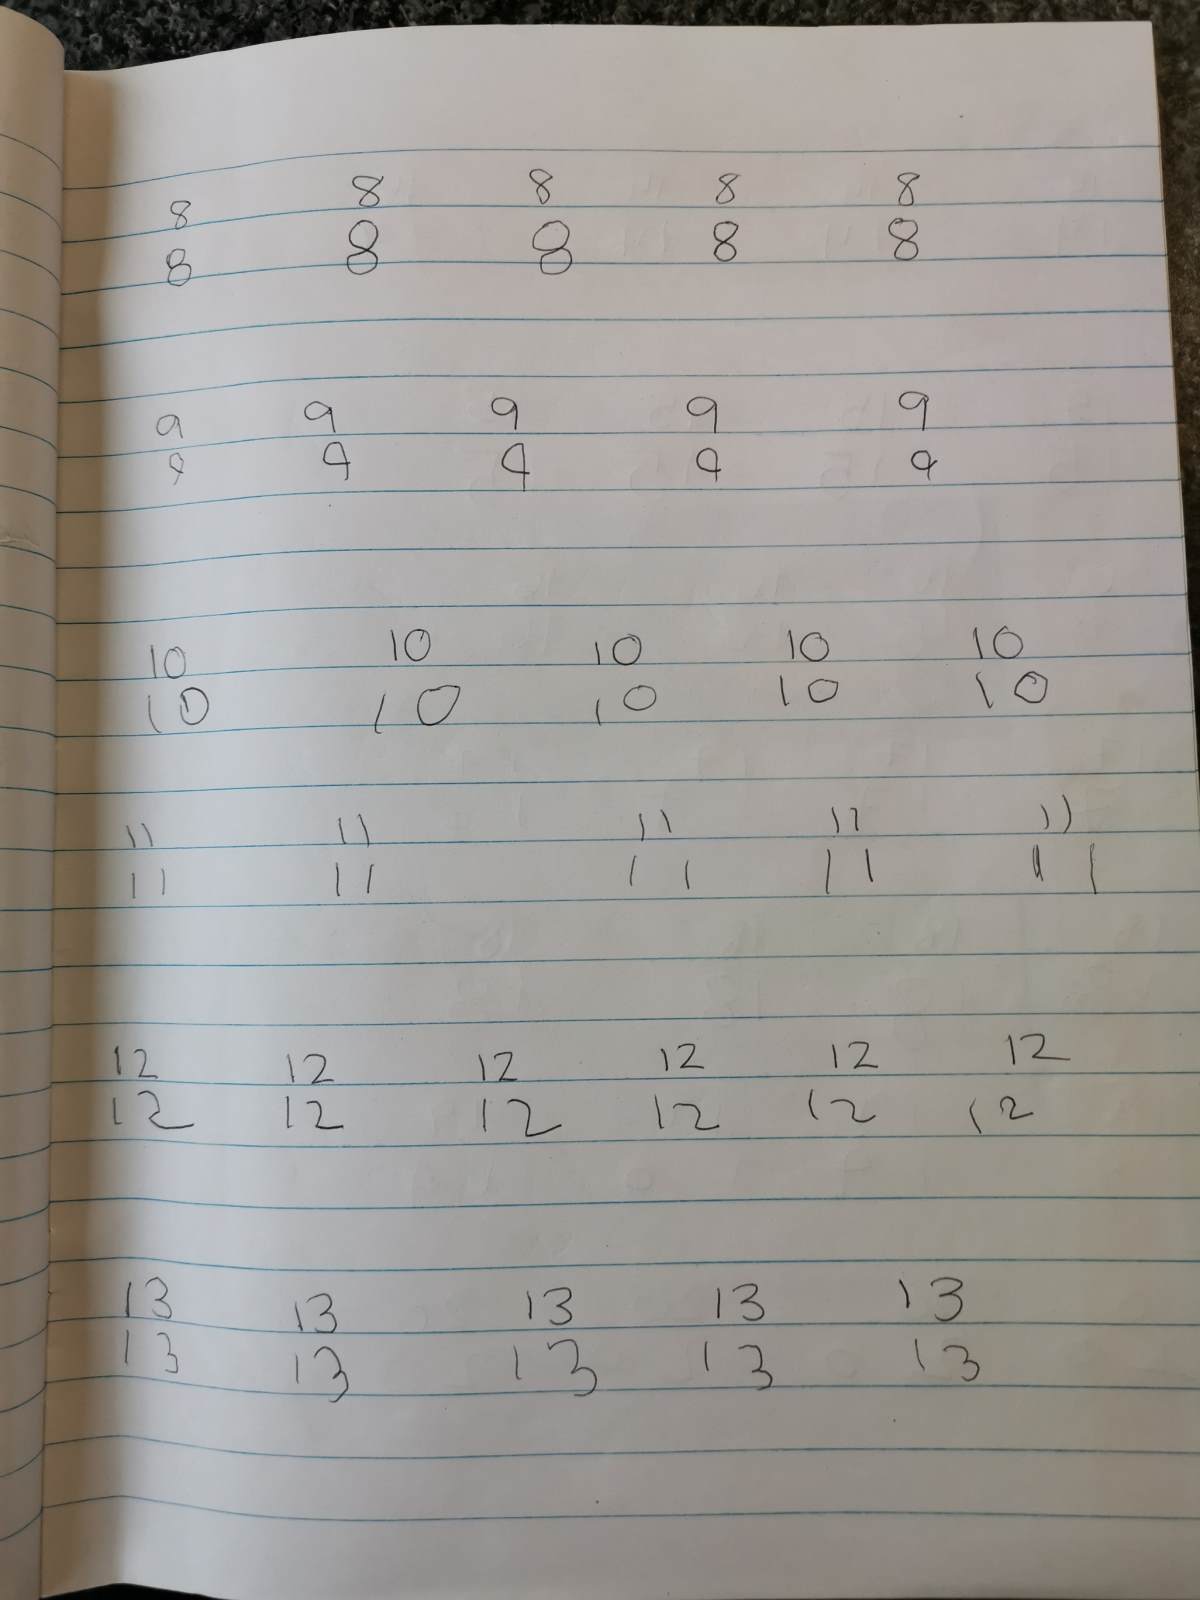 8 8 8 8 8
8 8 8 8 8
9 9 9 9 9
9 9 9 9 9
10 10 10 10 10
10 10 10 10 10
11 11 11 11 11
11 11 11 11 11
12 12 12 12 12 12
12 12 12 12 12 12
13 13 13 13 13
13 13 13 13 13